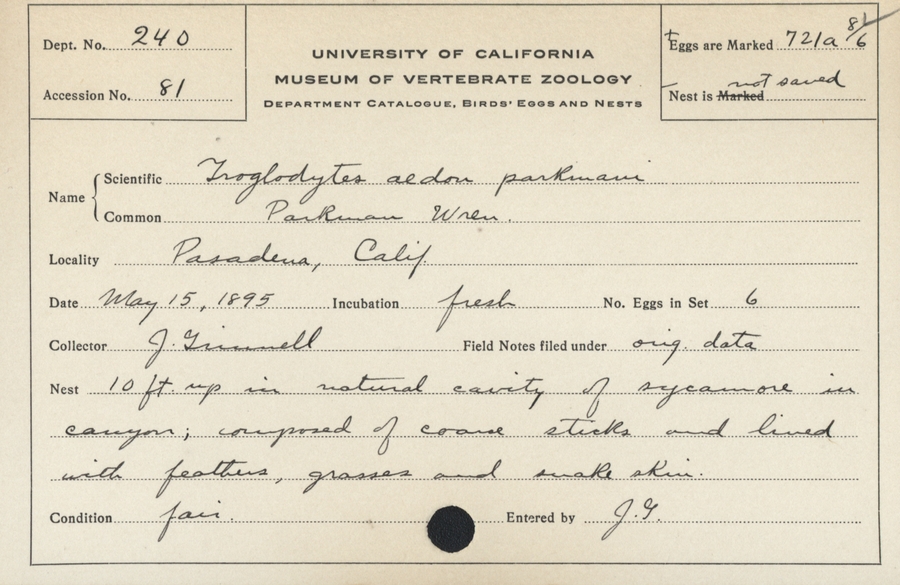 Dept. No. 240
Accession No. 81
UNIVERSITY OF CALIFORNIA
MUSEUM OF VERTEBRATE ZOOLOGY
DEPARTMENT CATALOGUE, BIRDS' EGGS AND NESTS
Eggs are Marked 721a 8/6
not saved
Nest is Marked
Name
Scientific Troglodytes aedon parkmani
Common Parkman Wren.
Locality Pasadena, Calif.
Date May 15, 1895 Incubation fresh No. Eggs in Set 6
Collector J. Grinnell Field Notes filed under orig. data
Nest 10 ft. up in natural cavity of sycamore in
canyon; composed of coarse sticks and lined
with feathers, grasses and snake skin.
Condition fair. Entered by J.G.